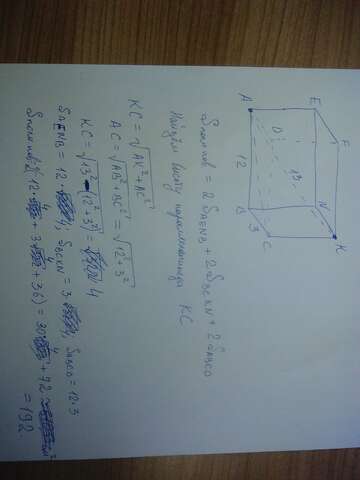 A E
D F
12 13
B N
3 C K
Sполн пов = 2 S AENB + 2 S BCKN + 2 S ABCD
Найдём высоту параллелепипеда KC
KC = √AK² + AC²
AC = √AB² + BC² = √12² + 3²
KC = √13² - (12² + 3²) = 4
S AENB = 12 · 4; S BCKN = 3 · 4; S ABCD = 12 · 3
Sполн пов = 2(12 · 4 + 3 · 4 + 36) = 30 · 4 + 72
= 192